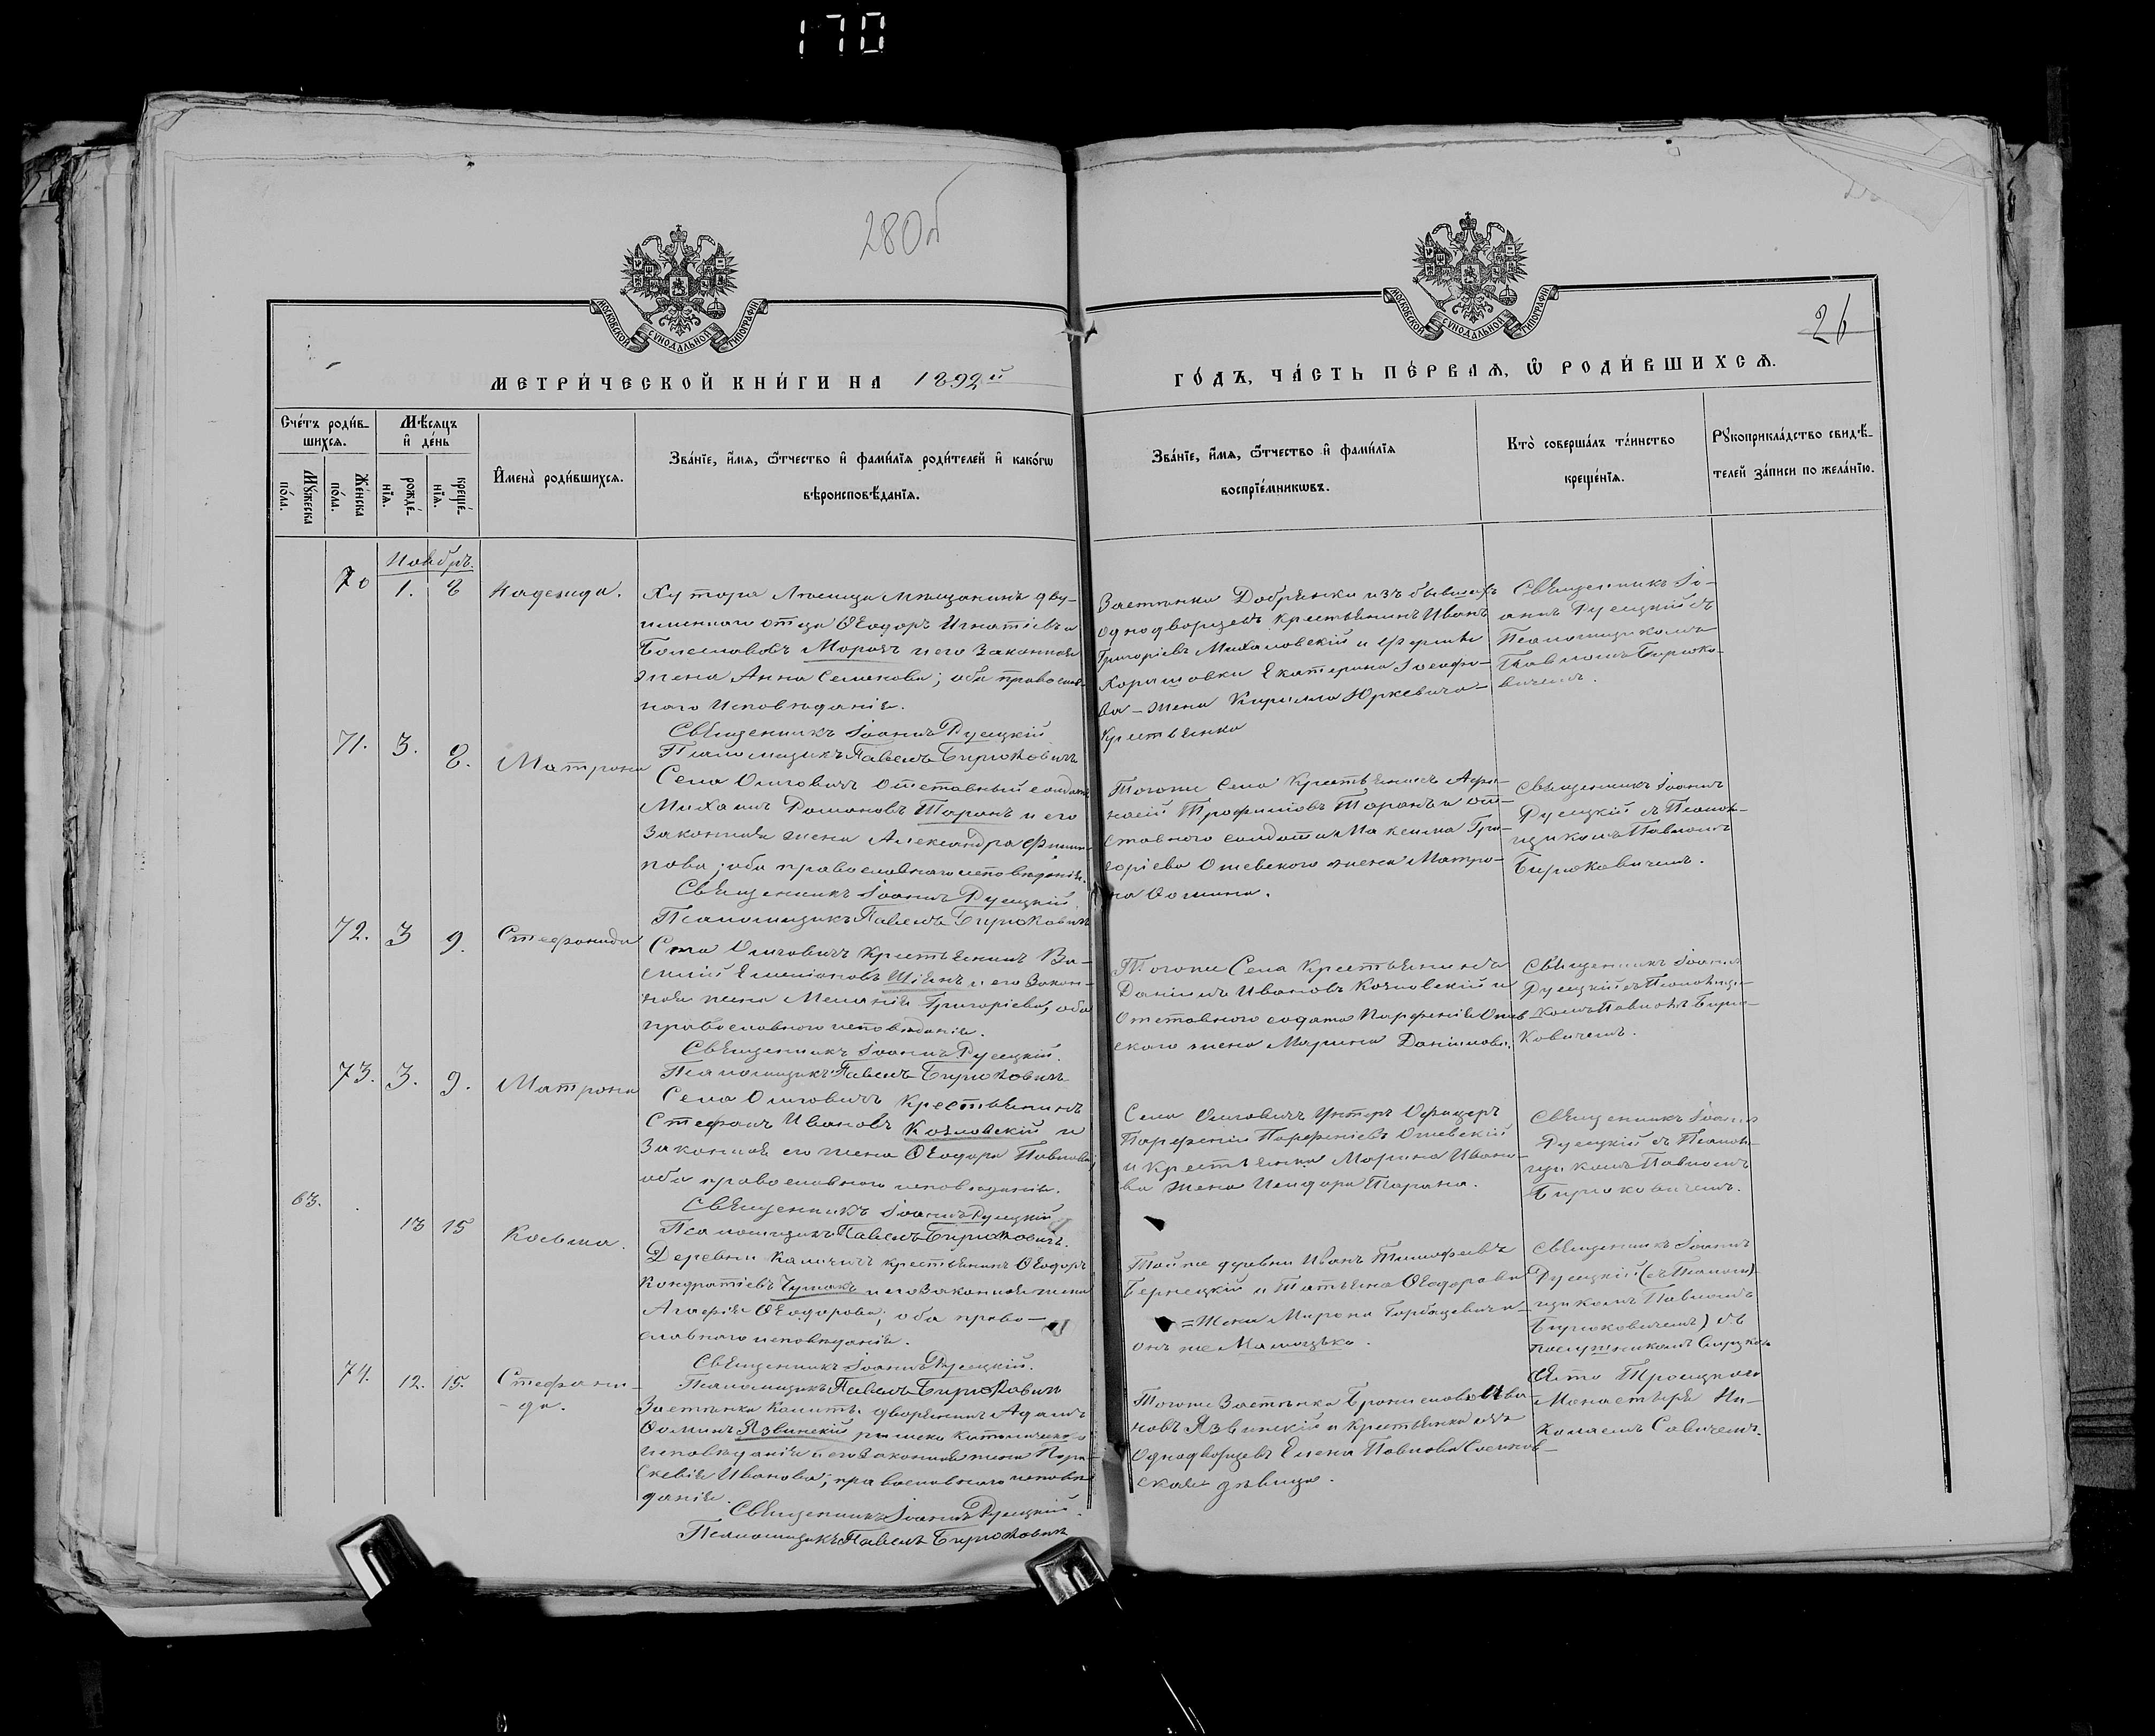 170
280б
МОСКОВСКОЙ СУНОДАЛЬНОЙ ТИПОГРАФІИ
МОСКОВСКОЙ СУНОДАЛЬНОЙ ТИПОГРАФІИ
26
МЕТРИ́ЧЕСКОЙ КНИ́ГИ НА 1892й
ГО́ДЪ, ЧА́СТЬ ПЕ́РВАѦ, Ѡ҆ РОДИ́ВШИХСѦ.
Сче́тъ роди́в-
шихсѧ.
Мꙋ́жеска по́ла.
Же́нска по́ла.
Мѣ́сѧцъ
и҆ де́нь
рожде́-
нїѧ.
креще́-
нїѧ.
И҆мена̀ роди́вшихсѧ.
Зва́нїе, и҆́мѧ, ѻ҆́тчество и҆ фами́лїѧ роди́телей и҆ како́гѡ
вѣроисповѣ́данїѧ.
Зва́нїе, и҆́мѧ, ѻ҆́тчество и҆ фами́лїѧ
воспрїе́мникѡвъ.
Кто̀ соверша́лъ та́инство
креще́нїѧ.
Рꙋкоприкла́дство свидѣ́-
телей за́писи по жела́нїю.
Ноябрь.
70 1. 8 Надежда.
Хутора Мѣщанинъ дву-
именнаго отца Ѳеодоръ Игнатіевъ
Морозъ и его законная
жена Анна Семенова; оба православ-
наго исповѣданія.
Священникъ Іоаннъ Русецкій
Псаломщикъ Павелъ Бирюковичъ
Застѣнка Добрянки изъ бывшихъ
однодворцевъ крестьянинъ Иванъ
Григоріевъ Михаловскій и
Екатерина Іосифо-
ва – жена Кирилла Юркевича –
крестьянка
Священникъ Іо-
аннъ Русецкій съ
Псаломщикомъ
Павломъ Бирюко-
вичемъ.
71. 3. 8. Матрона
Села Ольговичъ Отставный солдатъ
Михаилъ Романовъ Таранъ и его
законная жена Александра Филип-
пова; оба православнаго исповѣданія.
Священникъ Іоаннъ Русецкій.
Псаломщикъ Павелъ Бирюковичъ
Тогоже Села Крестьянинъ Афа-
насій Трофимовъ Таранъ и от-
ставного солдата Максима Гри-
горіева Ошевского жена Матро-
на Ѳомина.
Священникъ Іоаннъ
Русецкій съ Псалом-
щикомъ Павломъ
Бирюковичемъ.
72. 3 9. Стефанида
Села Ольговичъ Крестьянинъ Ва-
силій и его закон-
ная жена Меланія Григоріева; оба
православного исповѣданія.
Священникъ Іоаннъ Русецкій.
Псаломщикъ Павелъ Бирюковичъ
Тогоже Села Крестьянинъ
Даніилъ Ивановъ Козловскій и
Отставного содата Парфенія Ошев-
ского жена Марина Данилова.
Священникъ Іоаннъ
Русецкій съ Псаломщи-
комъ Павломъ Бирю-
ковичемъ.
73. 3. 9. Матрона
Села Ольговичъ крестьянинъ
Стефанъ Ивановъ Козловскій и
Законная его жена Ѳеодора Павлова;
оба православнаго исповѣданія.
Священникъ Іоаннъ Русецкій
Псаломщикъ Павелъ Бирюковичъ.
Села Ольговичъ Унтеръ Офицеръ
Парфеній Парфеніевъ Ошевскій
и Крестьянка Марина Ивано-
ва жена Исидора Тарана.
Священникъ Іоаннъ
Русецкій съ Псалом-
щикомъ Павломъ
Бирюковичемъ.
63. 13 15 Косьма.
Деревни Каличичъ крестьянинъ Ѳеодоръ
Кондратіевъ Чумакъ и его законная жена
Агафія Ѳеодорова; оба право-
славнаго исповѣданія.
Священникъ Іоаннъ Русецкій.
Псаломщикъ Павелъ Бирюковичъ
Той же деревни Иванъ Тимофеевъ
Бернецкій и Татьяна Ѳеодорова
= жена Мирона Горбацевича
онъ же
Священникъ Іоаннъ
Русецкій (съ Псалом-
щикомъ Павломъ
Бирюковичемъ) съ
послушникомъ Слуцкаго
Свято Троицкаго
Монастыря Ни-
колаемъ Савичемъ.
74. 12. 15. Стефани-
- да.
Застѣнка дворянинъ Адамъ
Ѳоминъ Язвинскій римско католическаго
исповѣданія и его законная жена Пара-
скевія Иванова; православнаго исповѣ-
данія.
Священникъ Іоаннъ Русецкій.
Псаломщикъ Павелъ Бирюковичъ
Тогоже Застѣнка Брониславъ Ива-
новъ Язвинскій и Крестьянка изъ
Однодворцевъ Елена Павлова
ская дѣвица.